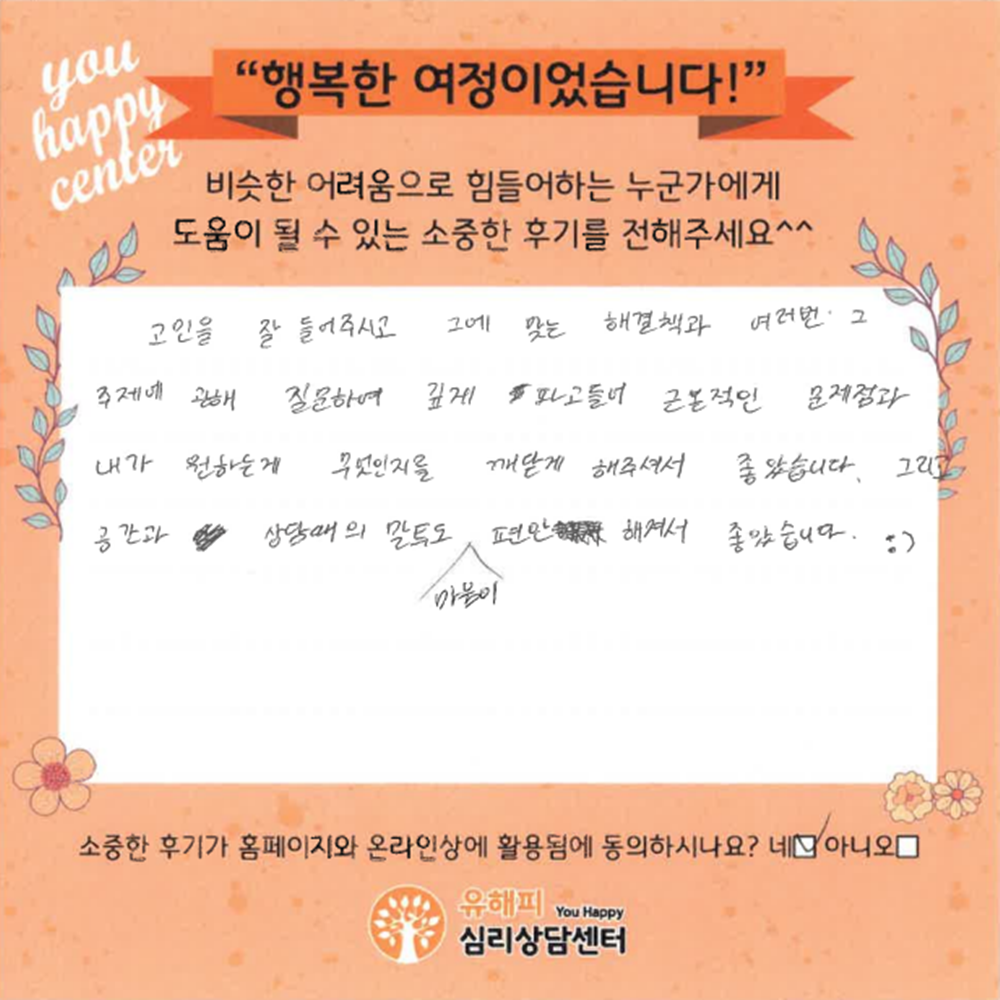 you
happy
center
“행복한 여정이었습니다!”
비슷한 어려움으로 힘들어하는 누군가에게
도움이 될 수 있는 소중한 후기를 전해주세요^^
고민을 잘 들어주시고 그에 맞는 해결책과 여러번 그
주제에 관해 질문하여 깊게 파고들어 근본적인 문제점과
내가 원하는게 무엇인지를 깨닫게 해주셔서 좋았습니다. 그리고
공간과 상담때의 말투도 편안 해져서 좋았습니다. :)
마음이
소중한 후기가 홈페이지와 온라인상에 활용됨에 동의하시나요? 네☑ 아니오☐
유해피 You Happy
심리상담센터